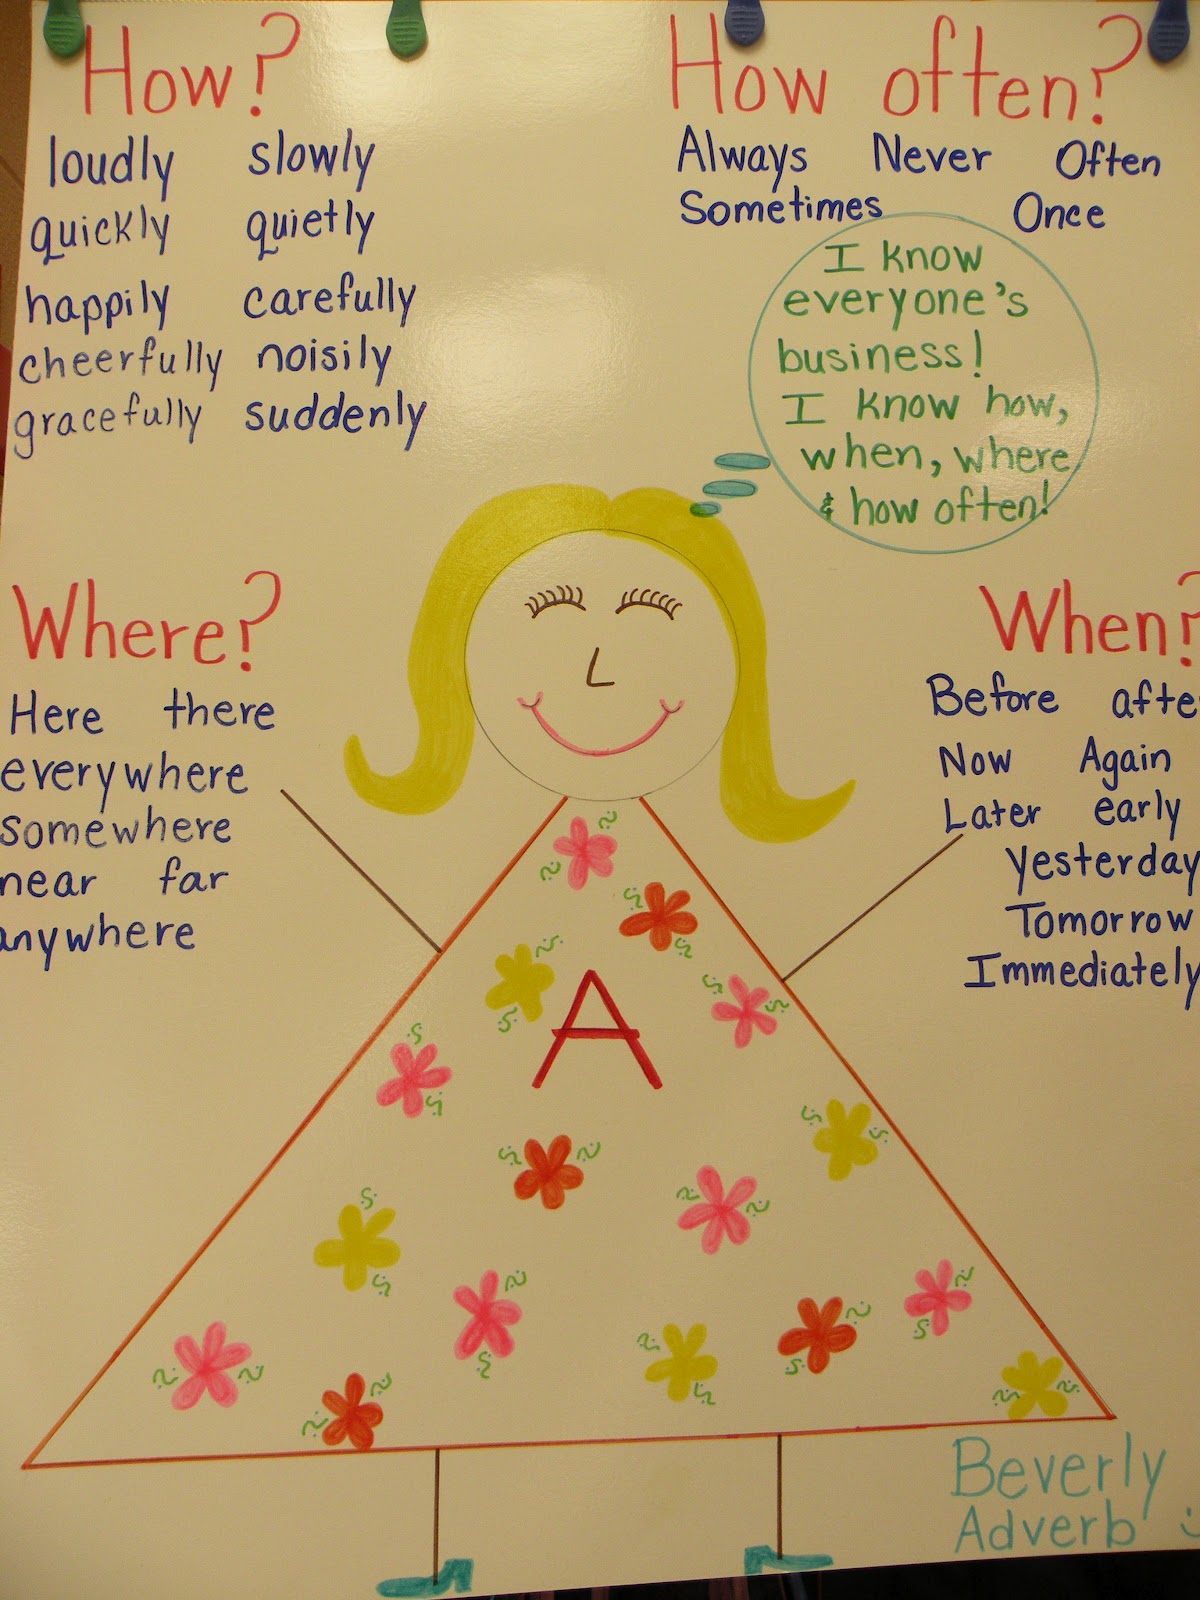 How?
loudly slowly
quickly quietly
happily carefully
cheerfully noisily
gracefully suddenly
How often?
Always Never Often
Sometimes Once
I know
everyone's
business!
I know how,
when, where
& how often!
Where?
Here there
everywhere
somewhere
near far
anywhere
When?
Before afte
Now Again
Later early
Yesterday
Tomorrow
Immediately
A
Beverly
Adverb